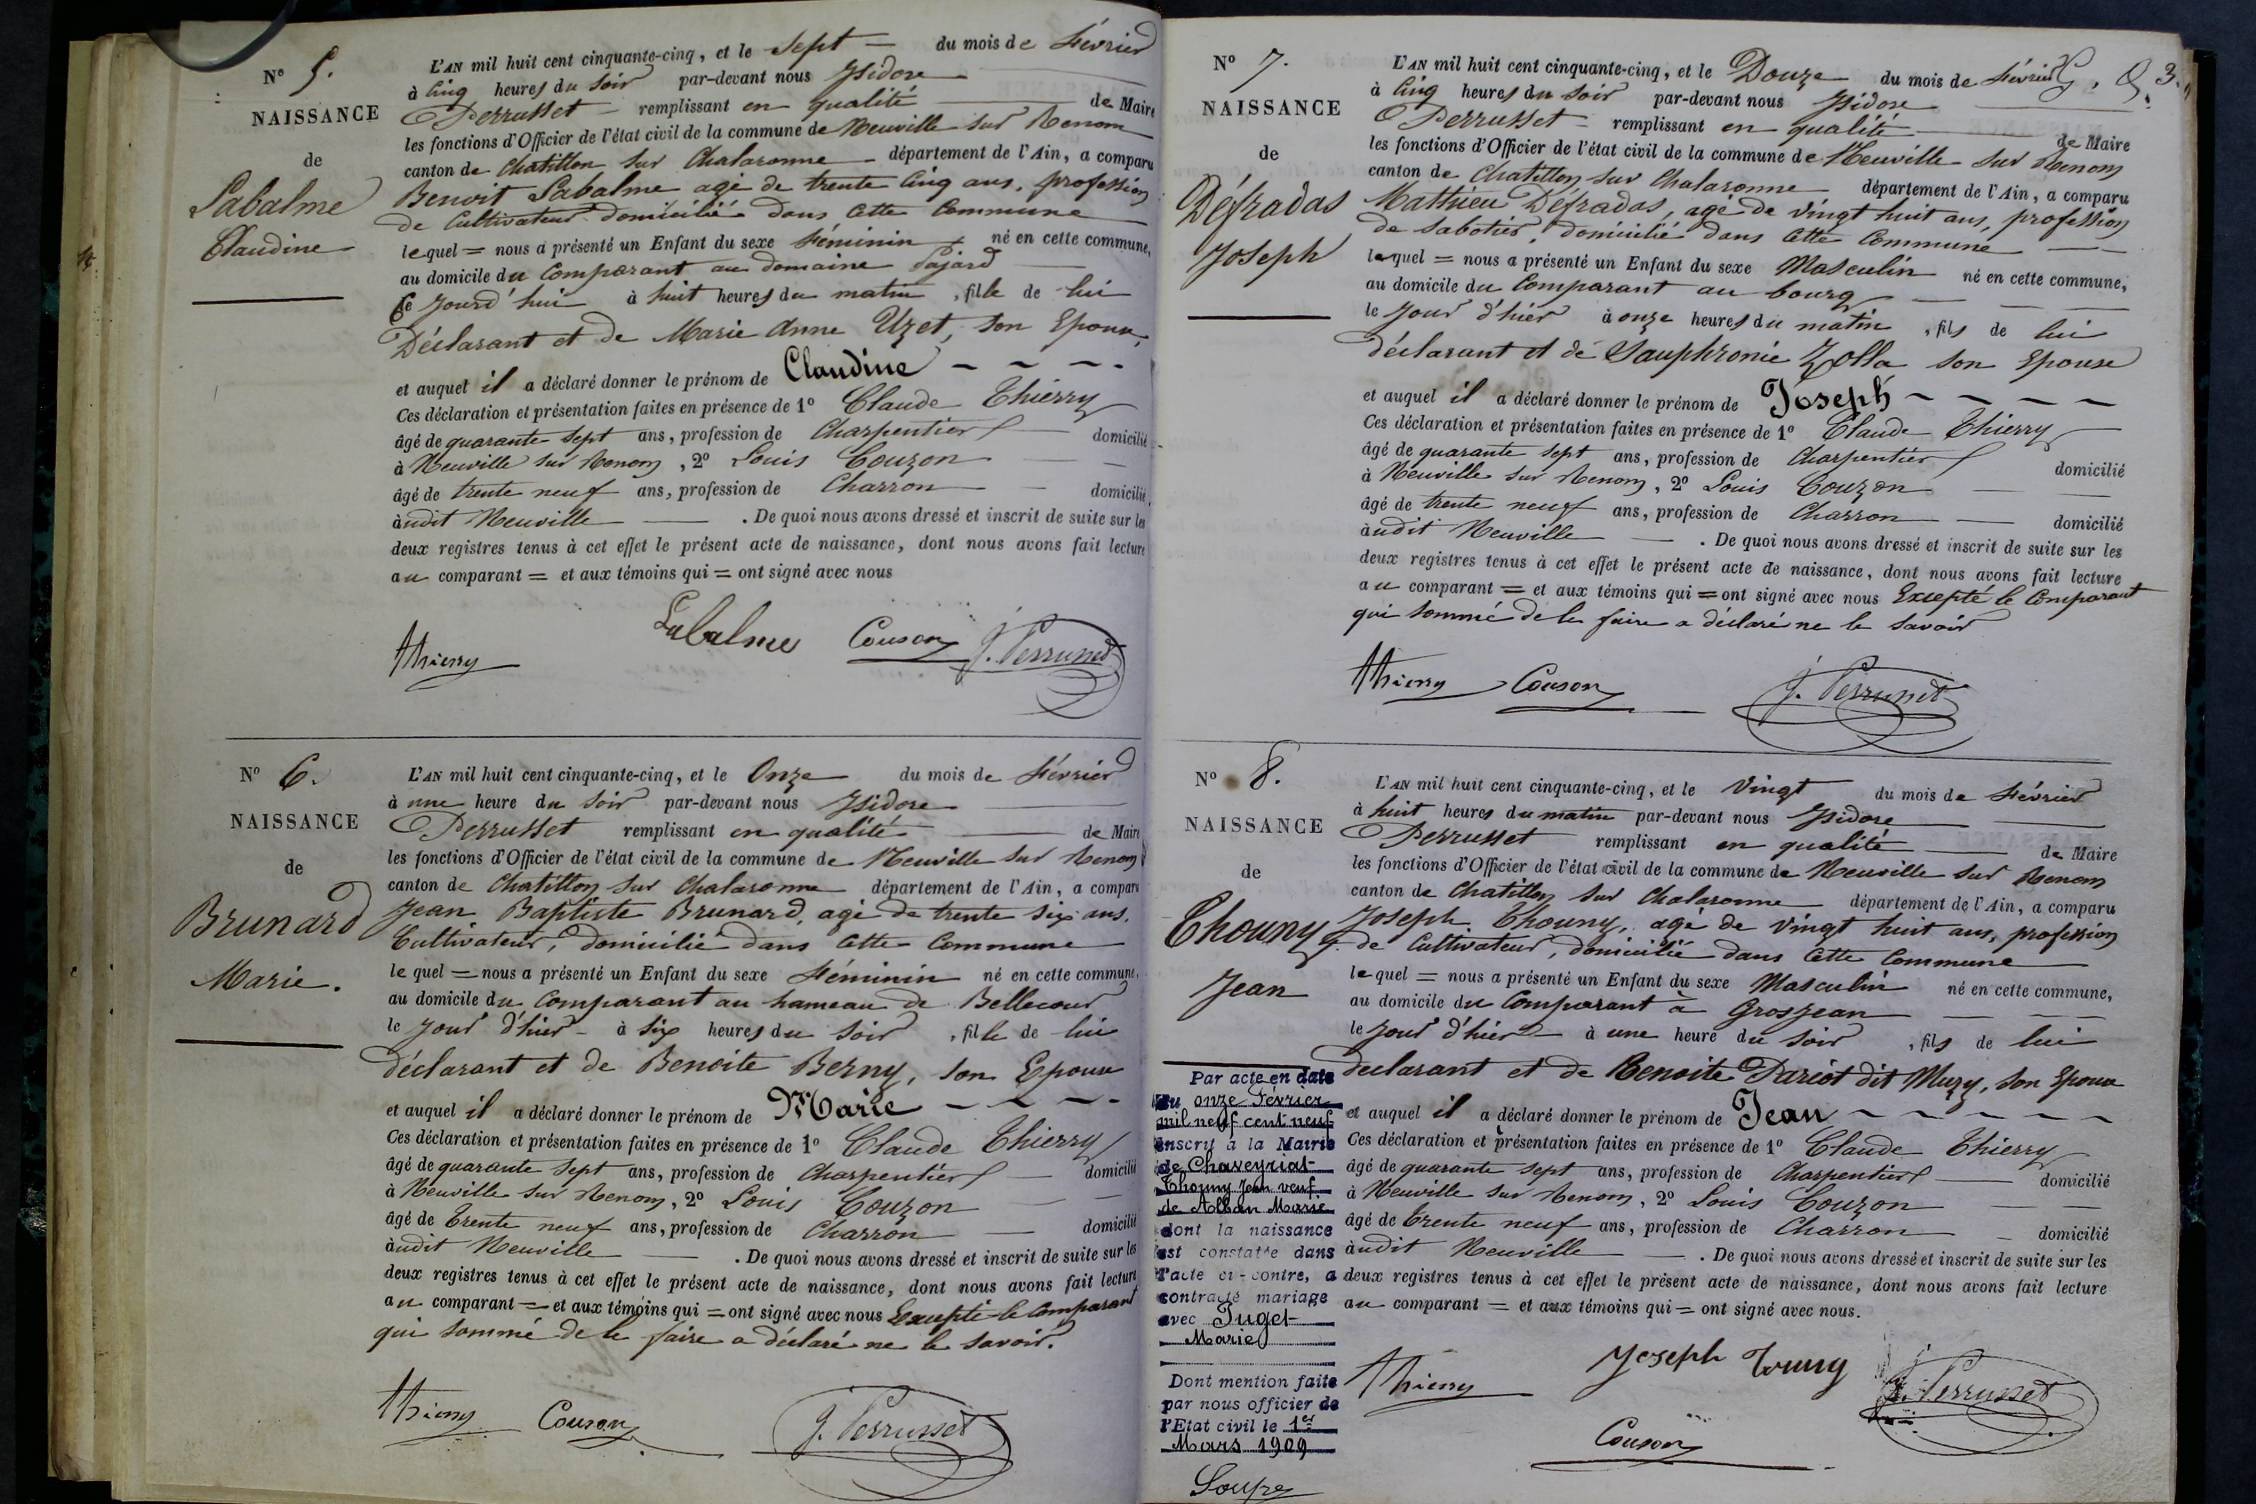 N° 5.
NAISSANCE
de
Labalme
Claudine
L'AN mil huit cent cinquante-cinq, et le sept du mois de février
à cinq heures du soir par-devant nous Isidore
Perrusset remplissant en qualité de Maire
les fonctions d'Officier de l'état civil de la commune de Neuville sur Renom
canton de Chatillon sur Chalaronne département de l'Ain, a comparu
Benoit Labalme agé de trente cinq ans, profession
de Cultivateur domicilié dans cette Commune
lequel = nous a présenté un Enfant du sexe féminin né en cette commune,
au domicile du Comparant au domaine Pajard
Ce jourd'hui à huit heures du matin, fille de lui
Déclarant et de Marie Anne Uzet, son Epouse,
et auquel il a déclaré donner le prénom de Claudine
Ces déclaration et présentation faites en présence de 1° Claude Thierry
âgé de quarante sept ans, profession de Charpentier domicilié
à Neuville sur Renom, 2° Louis Couzon
âgé de trente neuf ans, profession de Charron domicilié
àudit Neuville. De quoi nous avons dressé et inscrit de suite sur les
deux registres tenus à cet effet le présent acte de naissance, dont nous avons fait lecture
au comparant = et aux témoins qui = ont signé avec nous
Labalme Couson J. Perrusset
Thierry
N° 6.
NAISSANCE
de
Brunard
Marie.
L'AN mil huit cent cinquante-cinq, et le Onze du mois de février
à une heure du soir par-devant nous Isidore
Perrusset remplissant en qualité de Maire
les fonctions d'Officier de l'état civil de la commune de Neuville sur Renom
canton de Chatillon sur Chalaronne département de l'Ain, a comparu
Jean Baptiste Brunard, agé de trente six ans,
Cultivateur, domicilié dans cette Commune
lequel = nous a présenté un Enfant du sexe féminin né en cette commune,
au domicile du Comparant au hameau de Bellecour
le jour d'hier à six heures du soir, fille de lui
déclarant et de Benoite Berny, son Epouse
et auquel il a déclaré donner le prénom de Marie
Ces déclaration et présentation faites en présence de 1° Claude Thierry
âgé de quarante sept ans, profession de Charpentier domicilié
à Neuville sur Renom, 2° Louis Couzon
âgé de trente neuf ans, profession de Charron domicilié
àudit Neuville. De quoi nous avons dressé et inscrit de suite sur les
deux registres tenus à cet effet le présent acte de naissance, dont nous avons fait lecture
au comparant = et aux témoins qui = ont signé avec nous Excepté le Comparant
qui sommé de le faire a déclaré ne le savoir.
Thierry Couson J. Perrusset
N° 7.
NAISSANCE
de
Défradas
Joseph
L'AN mil huit cent cinquante-cinq, et le Douze du mois de février
à cinq heures du soir par-devant nous Isidore
Perrusset = remplissant en qualité de Maire
les fonctions d'Officier de l'état civil de la commune de Neuville sur Renom
canton de Chatillon sur Chalaronne département de l'Ain, a comparu
Mathieu Défradas, agé de vingt huit ans, profession
de sabotier, domicilié dans cette Commune
lequel = nous a présenté un Enfant du sexe Masculin né en cette commune,
au domicile du Comparant au bourg
le jour d'hier à onze heures du matin, fils de lui
déclarant et de Sauphronie Zolla son Epouse
et auquel il a déclaré donner le prénom de Joseph
Ces déclaration et présentation faites en présence de 1° Claude Thierry
âgé de quarante sept ans, profession de Charpentier domicilié
à Neuville sur Renom, 2° Louis Couzon
âgé de trente neuf ans, profession de Charron domicilié
àudit Neuville. De quoi nous avons dressé et inscrit de suite sur les
deux registres tenus à cet effet le présent acte de naissance, dont nous avons fait lecture
au comparant = et aux témoins qui = ont signé avec nous Excepté le Comparant
qui sommé de le faire a déclaré ne le savoir
Thierry Couson J. Perrusset
N° 8.
NAISSANCE
de
Thouny
Jean
L'AN mil huit cent cinquante-cinq, et le vingt du mois de février
à huit heures du matin par-devant nous Isidore
Perrusset remplissant en qualité de Maire
les fonctions d'Officier de l'état civil de la commune de Neuville sur Renom
canton de Chatillon sur Chalaronne département de l'Ain, a comparu
Joseph Thouny, agé de vingt huit ans, profession
de Cultivateur, domicilié dans cette Commune
lequel = nous a présenté un Enfant du sexe Masculin né en cette commune,
au domicile du Comparant à Grosjean
le jour d'hier à une heure du soir, fils de lui
déclarant et de Benoite Pariot dit Muzy, son Epouse
et auquel il a déclaré donner le prénom de Jean
Ces déclaration et présentation faites en présence de 1° Claude Thierry
âgé de quarante sept ans, profession de Charpentier domicilié
à Neuville sur Renom, 2° Louis Couzon
âgé de trente neuf ans, profession de Charron domicilié
àudit Neuville. De quoi nous avons dressé et inscrit de suite sur les
deux registres tenus à cet effet le présent acte de naissance, dont nous avons fait lecture
au comparant = et aux témoins qui = ont signé avec nous.
Thierry Joseph Touny J. Perrusset
Couson
Par acte en date
du onze Février
mil neuf cent neuf
inscrit à la Mairie
de Chaveyriat
Thouny Jean veuf
de Alban Marie
dont la naissance
est constatée dans
l'acte ci-contre, a
contracté mariage
avec Juget
Marie
Dont mention faite
par nous officier de
l'Etat civil le 1er
Mars 1909
Soupe